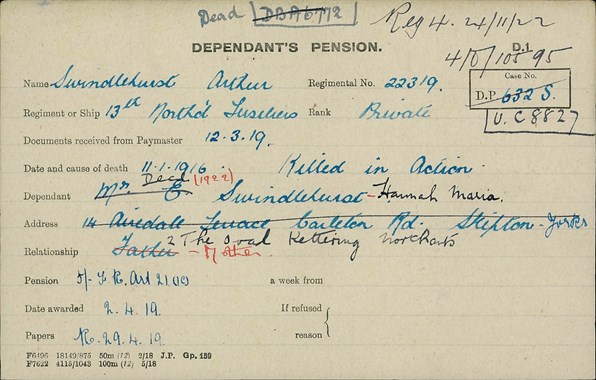 Dead DBA6772 Reg 4. 24/11/22
DEPENDANT'S PENSION. D.1
4/D/10595
Name Swindlehurst Arthur Regimental No. 22319. Case No.
D.P. 632 S.
Regiment or Ship 13th North'd Fusiliers Rank Private U.C 8827
Documents received from Paymaster 12.3.19.
Date and cause of death 11-1-1916 Killed in Action
Dead (1922)
Dependant Mr. E. Swindlehurst - Hannah Maria.
Address 14 Airedale Terrace Carleton Rd. Skipton - Yorks
2 The Oval Kettering Northants
Relationship Father - Mother.
Pension 5/- Art 21 a week from
Date awarded 2.4.19. If refused
Papers R. 29.4.19. reason
F6496 18149/875 50m (12) 2/18 J.P. Gp. 159
F7622 4115/1043 100m (12) 5/18